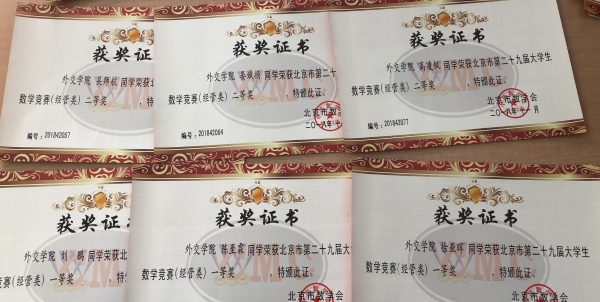 获奖证书
外交学院 同学荣获北
数学竞赛(经管类)二等奖
编号:201842057
获奖证书
外交学院 同学荣获北京市第二十
数学竞赛(经管类)二等奖,特颁此证。
北京市数
二〇一八年
编号:201842064
获奖证书
外交学院 同学荣获北京市第二十九届大学生
数学竞赛(经管类)二等奖,特颁此证。
北京市数学会
二〇一八年十一月
编号:201842077
获奖证书
外交学院 刘鹏 同学荣获北
数学竞赛(经管类)一等奖,特
获奖证书
外交学院 陈孟霖 同学荣获北京市第二十九届大
数学竞赛(经管类)一等奖,特颁此证。
北京市数学会
获奖证书
外交学院 徐亚晖 同学荣获北京市第二十九届大学生
数学竞赛(经管类)一等奖,特颁此证。
北京市数学会